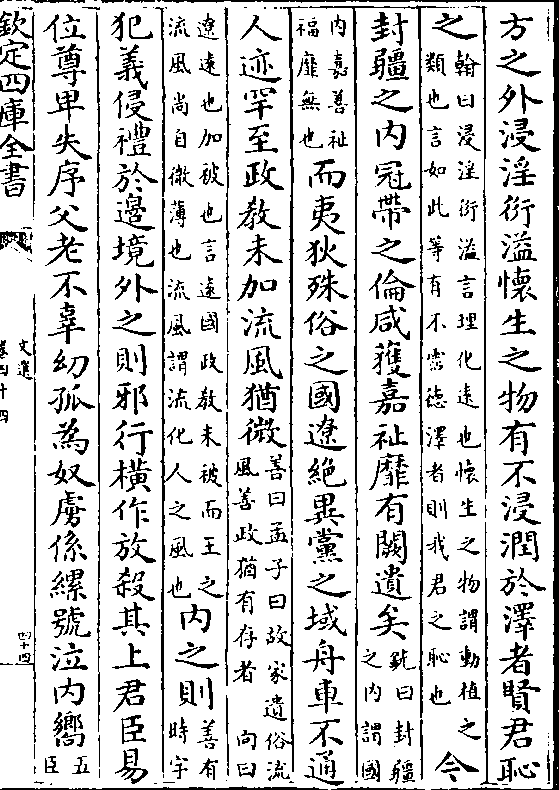 方之外浸淫衍溢懷生之物有不浸潤於澤者賢君恥
之翰曰浸淫衍溢言理化遠也懷生之物謂動植之類也言如此等有不霑德澤者則我君之恥也今
封疆之内冠帶之倫咸獲嘉祉靡有闕遺矣銑曰封疆之内謂國
内嘉善祉福靡無也而夷狄殊俗之國遼絶異黨之域舟車不通
人迹罕至政教未加流風猶微善曰孟子曰故家遺俗流風善政猶有存者向曰
遼遠也加被也言遠國政教未被而王之流風尚自微薄也流風謂流化人之風也内之則善有時字
犯義侵禮於邊境外之則邪行橫作放殺其上君臣易
位尊卑失序父老不辜幼孤為奴虜係縲號泣内嚮五臣
欽定四庫全書
文選
卷四十四
四十四